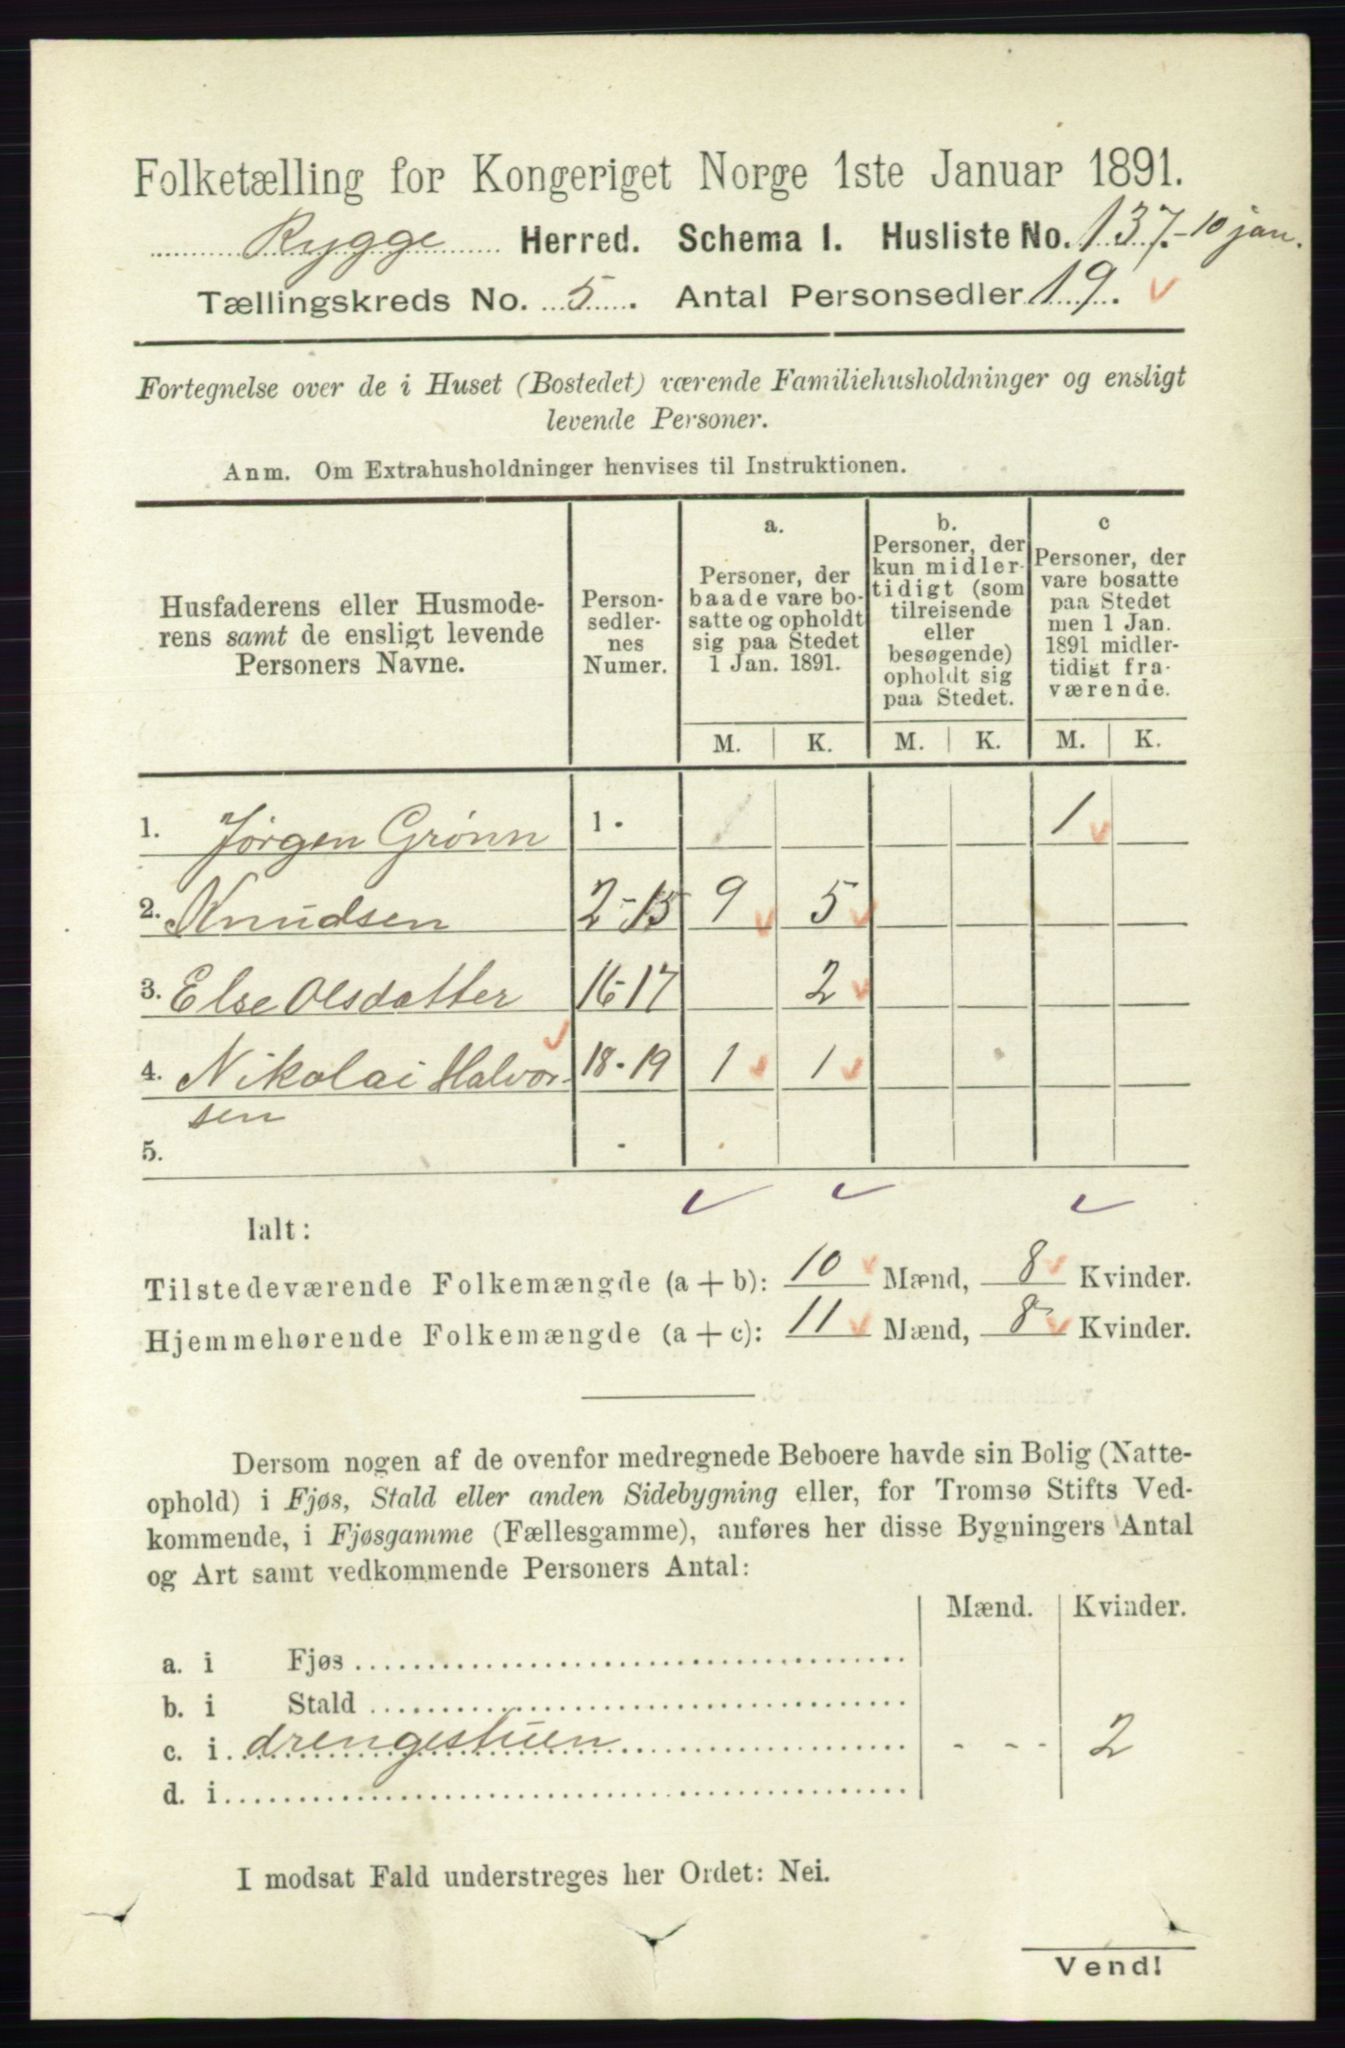 Folketælling for Kongeriget Norge 1ste Januar 1891.
Rygge Herred. Schema I. Husliste No. 137.-10 jan.
Tællingskreds No. 5. Antal Personsedler 19.
Fortegnelse over de i Huset (Bostedet) værende Familiehusholdninger og ensligt
levende Personer.
Anm. Om Extrahusholdninger henvises til Instruktionen.
Husfaderens eller Husmode-
rens samt de ensligt levende
Personers Navne.
Person-
sedler-
nes
Numer.
a.
Personer, der
baade vare bo-
satte og opholdt
sig paa Stedet
1 Jan. 1891.
b.
Personer, der
kun midler-
tidigt (som
tilreisende
eller
besøgende)
opholdt sig
paa Stedet.
c
Personer, der
vare bosatte
paa Stedet
men 1 Jan.
1891 midler-
tidigt fra-
værende.
M. K. M. K. M. K.
1. Jørgen Grönn 1. 1
2. Knudsen 2-15 9 5
3. Else Olsdatter 16-17 2
4. Nikolai Halvor- 18-19 1 1
sen
5.
Ialt:
Tilstedeværende Folkemængde (a + b): 10 Mænd, 8 Kvinder.
Hjemmehørende Folkemængde (a + c): 11 Mænd, 8 Kvinder.
Dersom nogen af de ovenfor medregnede Beboere havde sin Bolig (Natte-
ophold) i Fjøs, Stald eller anden Sidebygning eller, for Tromsø Stifts Ved-
kommende, i Fjøsgamme (Fællesgamme), anføres her disse Bygningers Antal
og Art samt vedkommende Personers Antal:
Mænd. Kvinder.
a. i Fjøs
b. i Stald
c. i drengestuen - - - 2
d. i
I modsat Fald understreges her Ordet: Nei.
Vend!